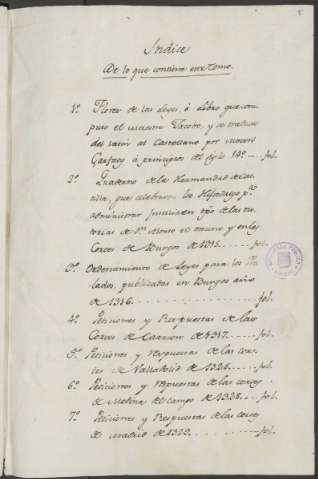 Indice
De lo que contiene este Tomo.
1º Flores de las Leyes, ó Libro que com
puso el maestro Jacobo, y se traduxo
del latin al Castellano por
á principios del siglo 14º fol.
2º Quaderno de la Hermandad de Cas
tilla, que celebraron los Hijosdalgo pª
administrar Justicia en tpo de las tu
torias de Dn Alonso el onceno y en las
Cortes de Burgos de 1315. fol.
3º Ordenamiento de Leyes para los Pre
lados, publicadas en Burgos año
de 1316. fol.
4º Peticiones y Respuestas de las
Cortes de Carrion de 1317. fol.
5º Peticiones y respuestas de las cor
tes de Valladolid de fol.
6º Peticiones y repuestas de las cortes
de Medina del campo de fol.
7º Peticiones y Respuestas de las cortes
de Madrid de fol.